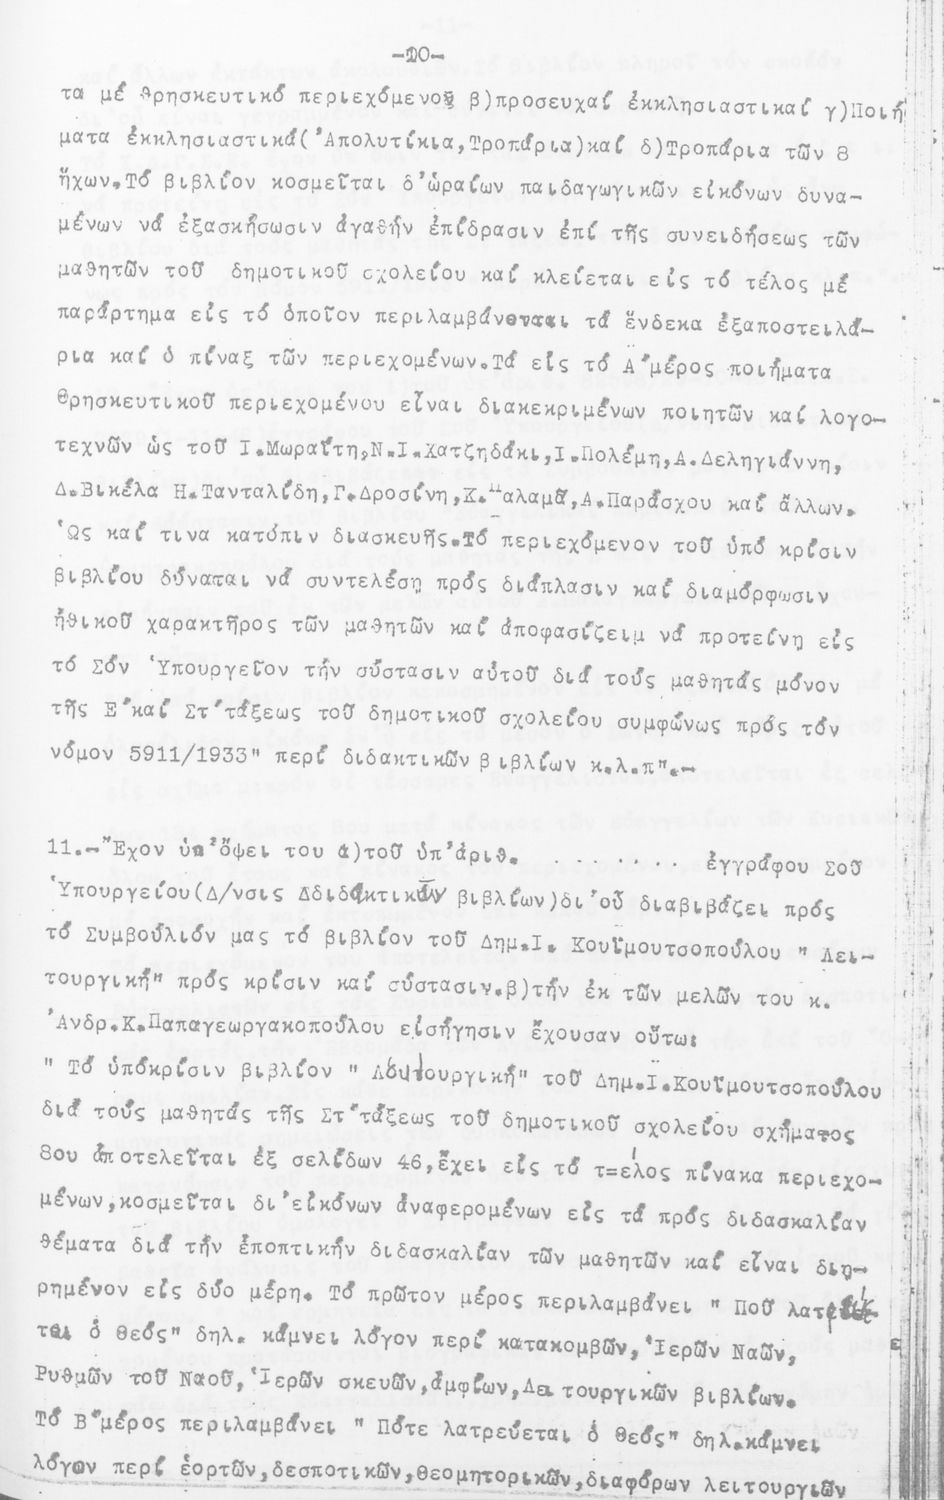 -10-
τα μέ θρησκευτικό περιεχόμενον β)προσευχαί ἐκκλησιαστικαί γ)Ποιή
ματα ἐκκλησιαστικά(Ἀπολυτίκια,Τροπάρια)καί δ)Τροπάρια τῶν 8
ἤχων.Τό βιβλίον κοσμεῖται δ'ὡραίων παιδαγωγικῶν εἰκόνων δυνα-
μένων νά ἐξασκήσωσιν ἀγαθήν ἐπίδρασιν ἐπί τῆς συνειδήσεως τῶν
μαθητῶν τοῦ δημοτικοῦ σχολείου καί κλείεται εἰς τό τέλος μέ
παράρτημα εἰς τό ὁποῖον περιλαμβάνονται τά ἕνδεκα ἐξαποστειλά-
ρια καί ὁ πίναξ τῶν περιεχομένων.Τά εἰς τό Α΄μέρος ποιήματα
θρησκευτικοῦ περιεχομένου εἶναι διακεκριμένων ποιητῶν καί λογο-
τεχνῶν ὡς τοῦ Ι.Μωραΐτη,Ν.Ι.Χατζηδάκι,Ι.Πολέμη,Α.Δεληγιάννη,
Δ.Βικέλα Η.Τανταλίδη,Γ.Δροσίνη,Κ.Παλαμᾶ,Α.Παράσχου καί ἄλλων.
Ὡς καί τινα κατόπιν διασκευῆς.Τό περιεχόμενον τοῦ ὑπό κρίσιν
βιβλίου δύναται νά συντελέση πρός διάπλασιν καί διαμόρφωσιν
ἠθικοῦ χαρακτῆρος τῶν μαθητῶν καί ἀποφασίζειμ νά προτείνη εἰς
τό Σόν Ὑπουργεῖον τήν σύστασιν αὐτοῦ διά τούς μαθητάς μόνον
τῆς Ε΄καί Στ΄τάξεως τοῦ δημοτικοῦ σχολείου συμφώνως πρός τόν
νόμον 5911/1933" περί διδακτικῶν βιβλίων κ.λ.π".-
11.-Ἔχον ὑπ'ὄψει του α)τοῦ ὑπ'ἀριθ. ........ ἐγγράφου Σοῦ
Ὑπουργείου(Δ/νσις Δδιδακτικῶν βιβλίων)δι'οὗ διαβιβάζει πρός
τό Συμβούλιόν μας τό βιβλίον τοῦ Δημ.Ι. Κουϊμουτσοπούλου " Λει-
τουργική" πρός κρίσιν καί σύστασιν.β)τήν ἐκ τῶν μελῶν του κ.
Ἀνδρ.Κ.Παπαγεωργακοπούλου εἰσήγησιν ἔχουσαν οὕτω:
" Τό ὑπόκρίσιν βιβλίον " Λειτουργική" τοῦ Δημ.Ι.Κουϊμουτσοπούλου
διά τούς μαθητάς τῆς Στ΄τάξεως τοῦ δημοτικοῦ σχολείου σχήματος
8ου ἀποτελεῖται ἐξ σελίδων 46,ἔχει εἰς τό τ=έλος πίνακα περιεχο-
μένων,κοσμεῖται δι'εἰκόνων ἀναφερομένων εἰς τά πρός διδασκαλίαν
θέματα διά τήν ἐποπτικήν διδασκαλίαν τῶν μαθητῶν καί εἶναι διῃ-
ρημένον εἰς δύο μέρη. Τό πρῶτον μέρος περιλαμβάνει " Ποῦ λατρεύε-
ται ὁ θεός" δηλ. κάμνει λόγον περί κατακομβῶν, Ἱερῶν Ναῶν,
Ρυθμῶν τοῦ Ναοῦ, Ἱερῶν σκευῶν,ἀμφίων,Λειτουργικῶν βιβλίων.
Τό Β΄μέρος περιλαμβάνει " Πότε λατρεύεται ὁ θεός" δηλ.κάμνει
λόγον περί ἑορτῶν,δεσποτικῶν,θεομητορικῶν,διαφόρων λειτουργιῶν